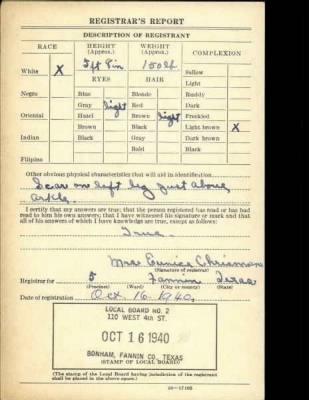 REGISTRAR'S REPORT
DESCRIPTION OF REGISTRANT
RACE HEIGHT (Approx.) WEIGHT (Approx.) COMPLEXION
White X 5 ft 8 in 150 lb Sallow
EYES HAIR Light
Negro Blue Blonde Ruddy
Gray light Red Dark
Oriental Hazel Brown light Freckled
Brown Black Light brown X
Indian Black Gray Dark brown
Bald Black
Filipino
Other obvious physical characteristics that will aid in identification
Scar on left leg just above
ankle.
I certify that my answers are true; that the person registered has read or has had
read to him his own answers; that I have witnessed his signature or mark and that
all of his answers of which I have knowledge are true, except as follows:
True.
Mrs Eunice
(Signature of registrar)
Registrar for 5 Fannin Texas
(Precinct) (Ward) (City or county) (State)
Date of registration Oct. 16 1940.
LOCAL BOARD NO. 2
110 WEST 4th ST.
OCT 16 1940
BONHAM, FANNIN CO., TEXAS
(STAMP OF LOCAL BOARD)
(The stamp of the Local Board having jurisdiction of the registrant
shall be placed in the above space.)